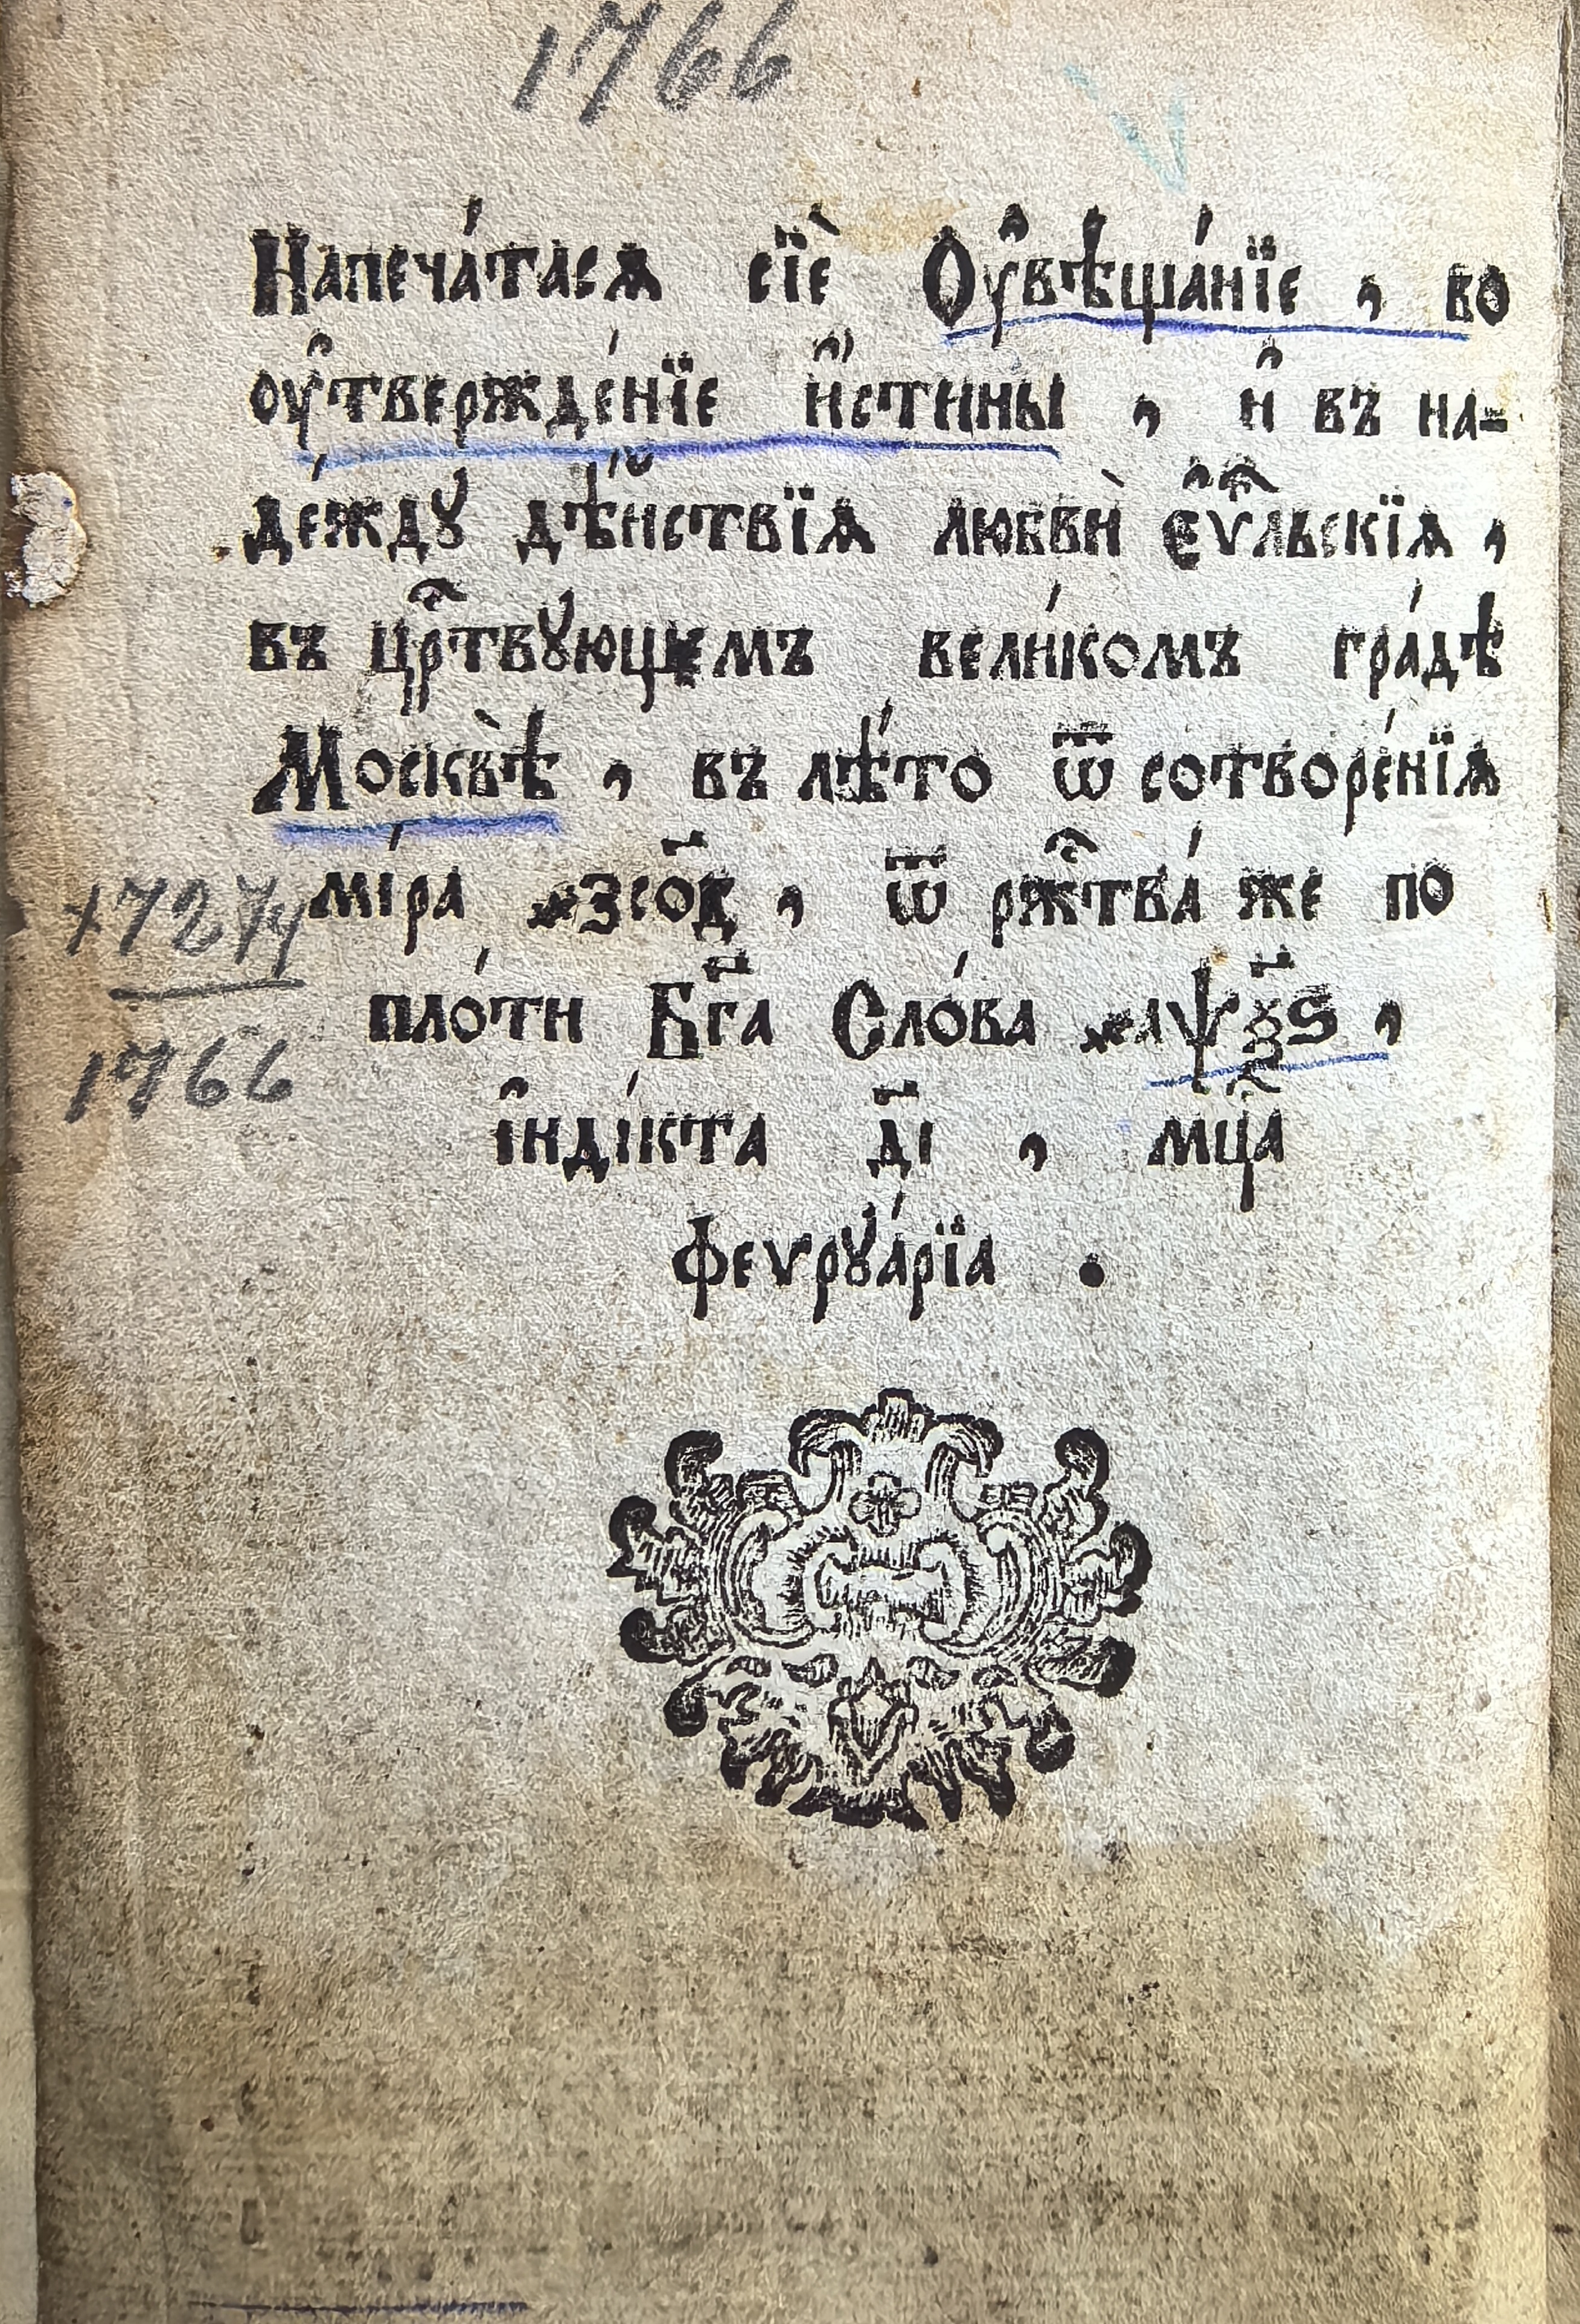 1766
Напеча́тасѧ сїѐ Оу҆вѣща́нїе , во
оу҆твержде́нїе и҆́стины , и҆ въ на-
де́ждꙋ дѣ́йствїѧ любвѝ є҆ѵⷢ҇льскїѧ ,
въ црⷭ҇твꙋющемъ вели́комъ гра́дѣ
Москвѣ̀ , въ лѣ́то ѿ сотворе́нїѧ
мі́ра ҂зсо҃д , ѿ ржⷭ҇тва́ же по
7274
пло́ти Бг҃а Сло́ва ҂аѱѯ҃ѕ ,
1766
і҆нді́кта д҃і , мцⷭ҇а
Феѵрꙋа́рїа .